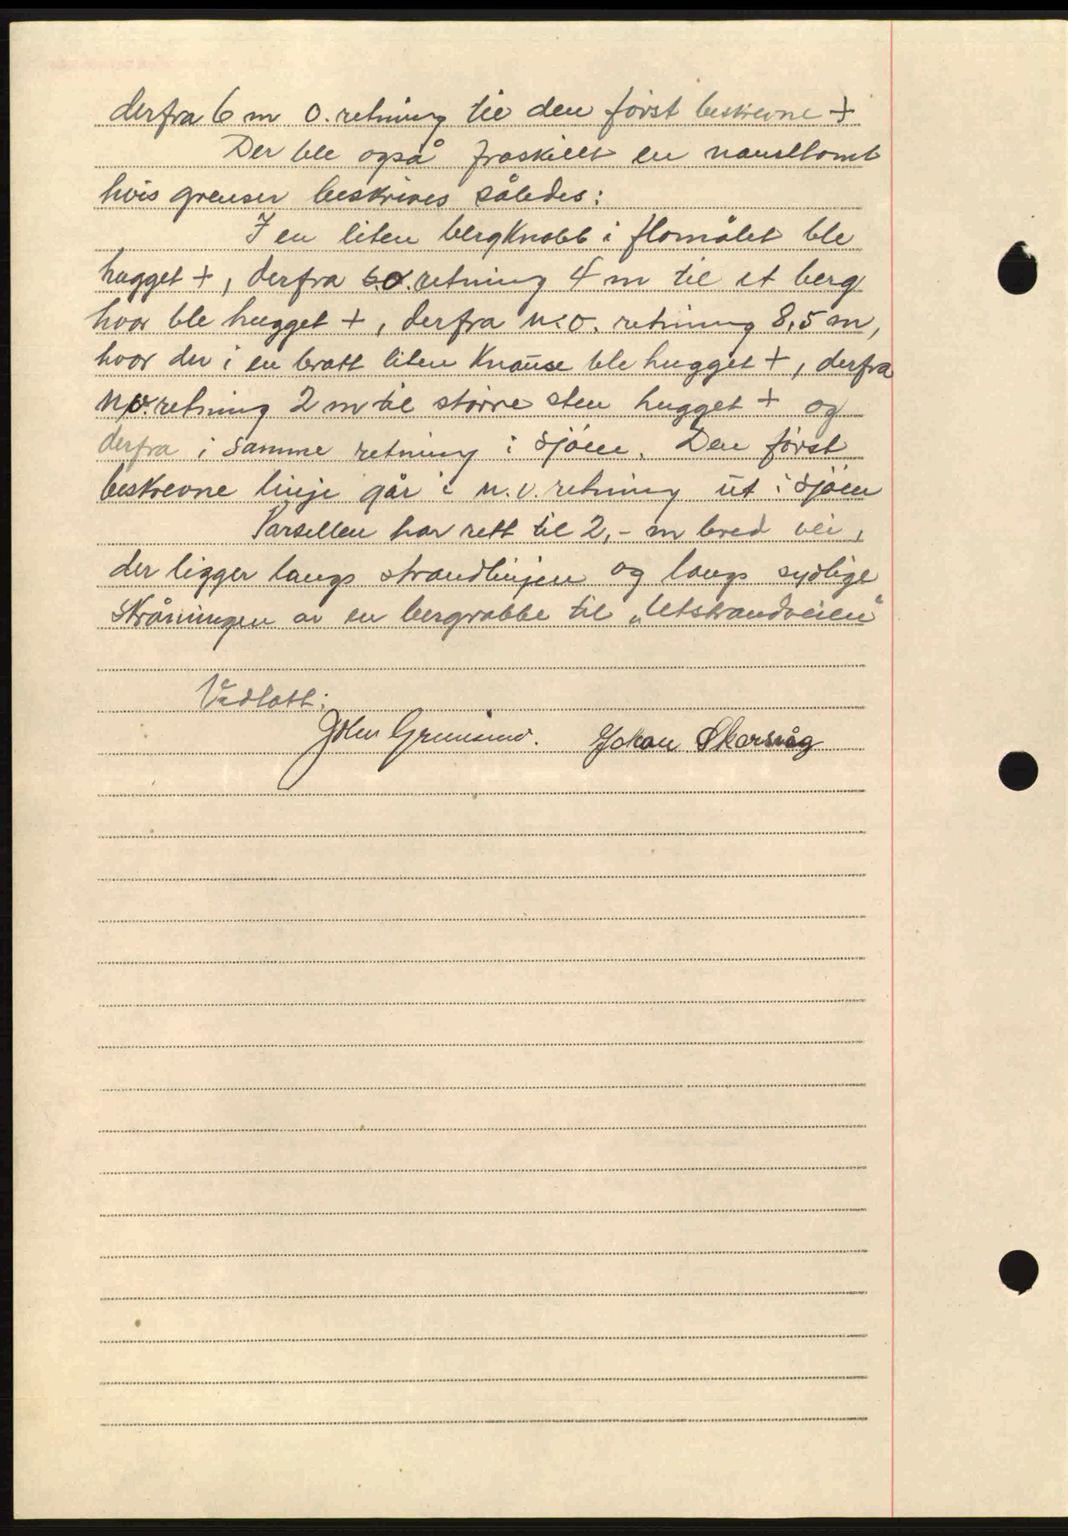 derfra 6 m o. retning til den först beskrevne +
Der ble også fraskillt en nausttomt
hvis grenser beskrives således:
I en liten bergknabb i flomålet ble
hugget +, derfra s.o. retning 4 m til et berg
hvor ble hugget +, derfra n.o. retning 8,5 m,
hvor der i en bratt liten knause ble hugget +, derfra
n.v. retning 2 m til större sten hugget + og
derfra i samme retning i sjöen. Den först
beskrevne linje går i n.v. retning ut i sjöen
Parsellen har rett til 2,- m bred vei,
der ligger langs strandlinjen og langs sydlige
skråningen av en bergrabbe til „Utstrandveien"
Vedtatt:
John Johan Skarsvåg